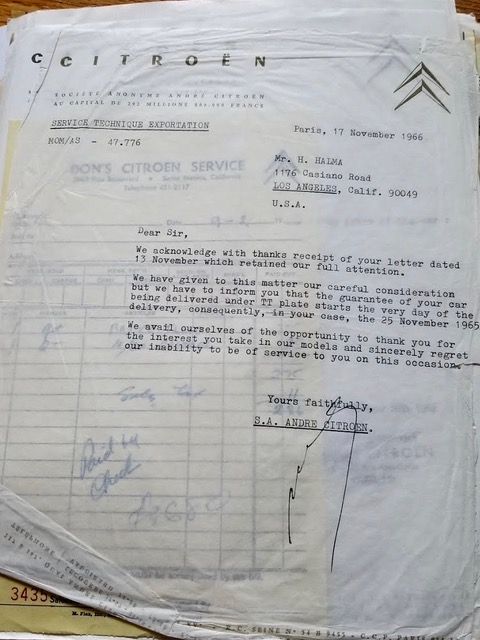 C CITROËN
SOCIÉTÉ ANONYME ANDRÉ CITROËN
AU CAPITAL DE MILLIONS FRANCS
SERVICE TECHNIQUE EXPORTATION
MOM/AS - 47.776
Paris, 17 November 1966
DON'S CITROEN SERVICE
Santa Monica, California
Telephone 451-2117
Mr. H. HALMA
1176 Casiano Road
LOS ANGELES, Calif. 90049
U.S.A.
Dear Sir,
We acknowledge with thanks receipt of your letter dated
13 November which retained our full attention.
We have given to this matter our careful consideration
but we have to inform you that the guarantee of your car
being delivered under TT plate starts the very day of the
delivery, consequently, in your case, the 25 November 1965
We avail ourselves of the opportunity to thank you for
the interest you take in our models and sincerely regret
our inability to be of service to you on this occasion.
Yours faithfully,
S.A. ANDRE CITROEN.
Paid by
Check
3435
R.C. SEINE Nº 54 B 5455 - C.C.P. PARIS